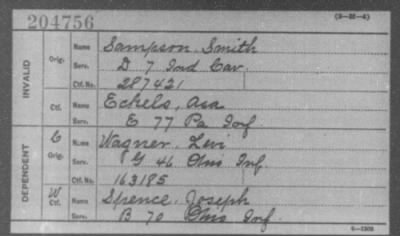 204756
(3-25-4)
INVALID
Orig.
Name Sampson Smith
Serv. D 7 Ind Cav.
Ctf. No. 287421
Ctf.
Name Echels, Asa
Serv. E 77 Pa Inf.
DEPENDENT
C Orig.
Name Wagner, Levi
Serv. G 46 Ohio Inf.
Ctf. No. 163185
W Ctf.
Name Spence, Joseph
Serv. B 70 Ohio Inf.